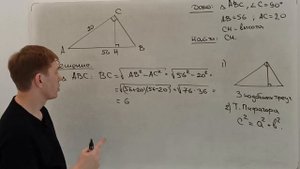 Дано: △ABC, ∠C = 90°
AB = 56, AC = 20
CH - высота
Найти:
CH.
C
20
A
56
H
B
Решение
△ABC: BC = √AB² - AC² = √56² - 20² =
= √(56+20)(56-20) = √76·36 =
= 6
1)
3 подобных треуг.
2) Т. Пифагора
c² = a² + b².